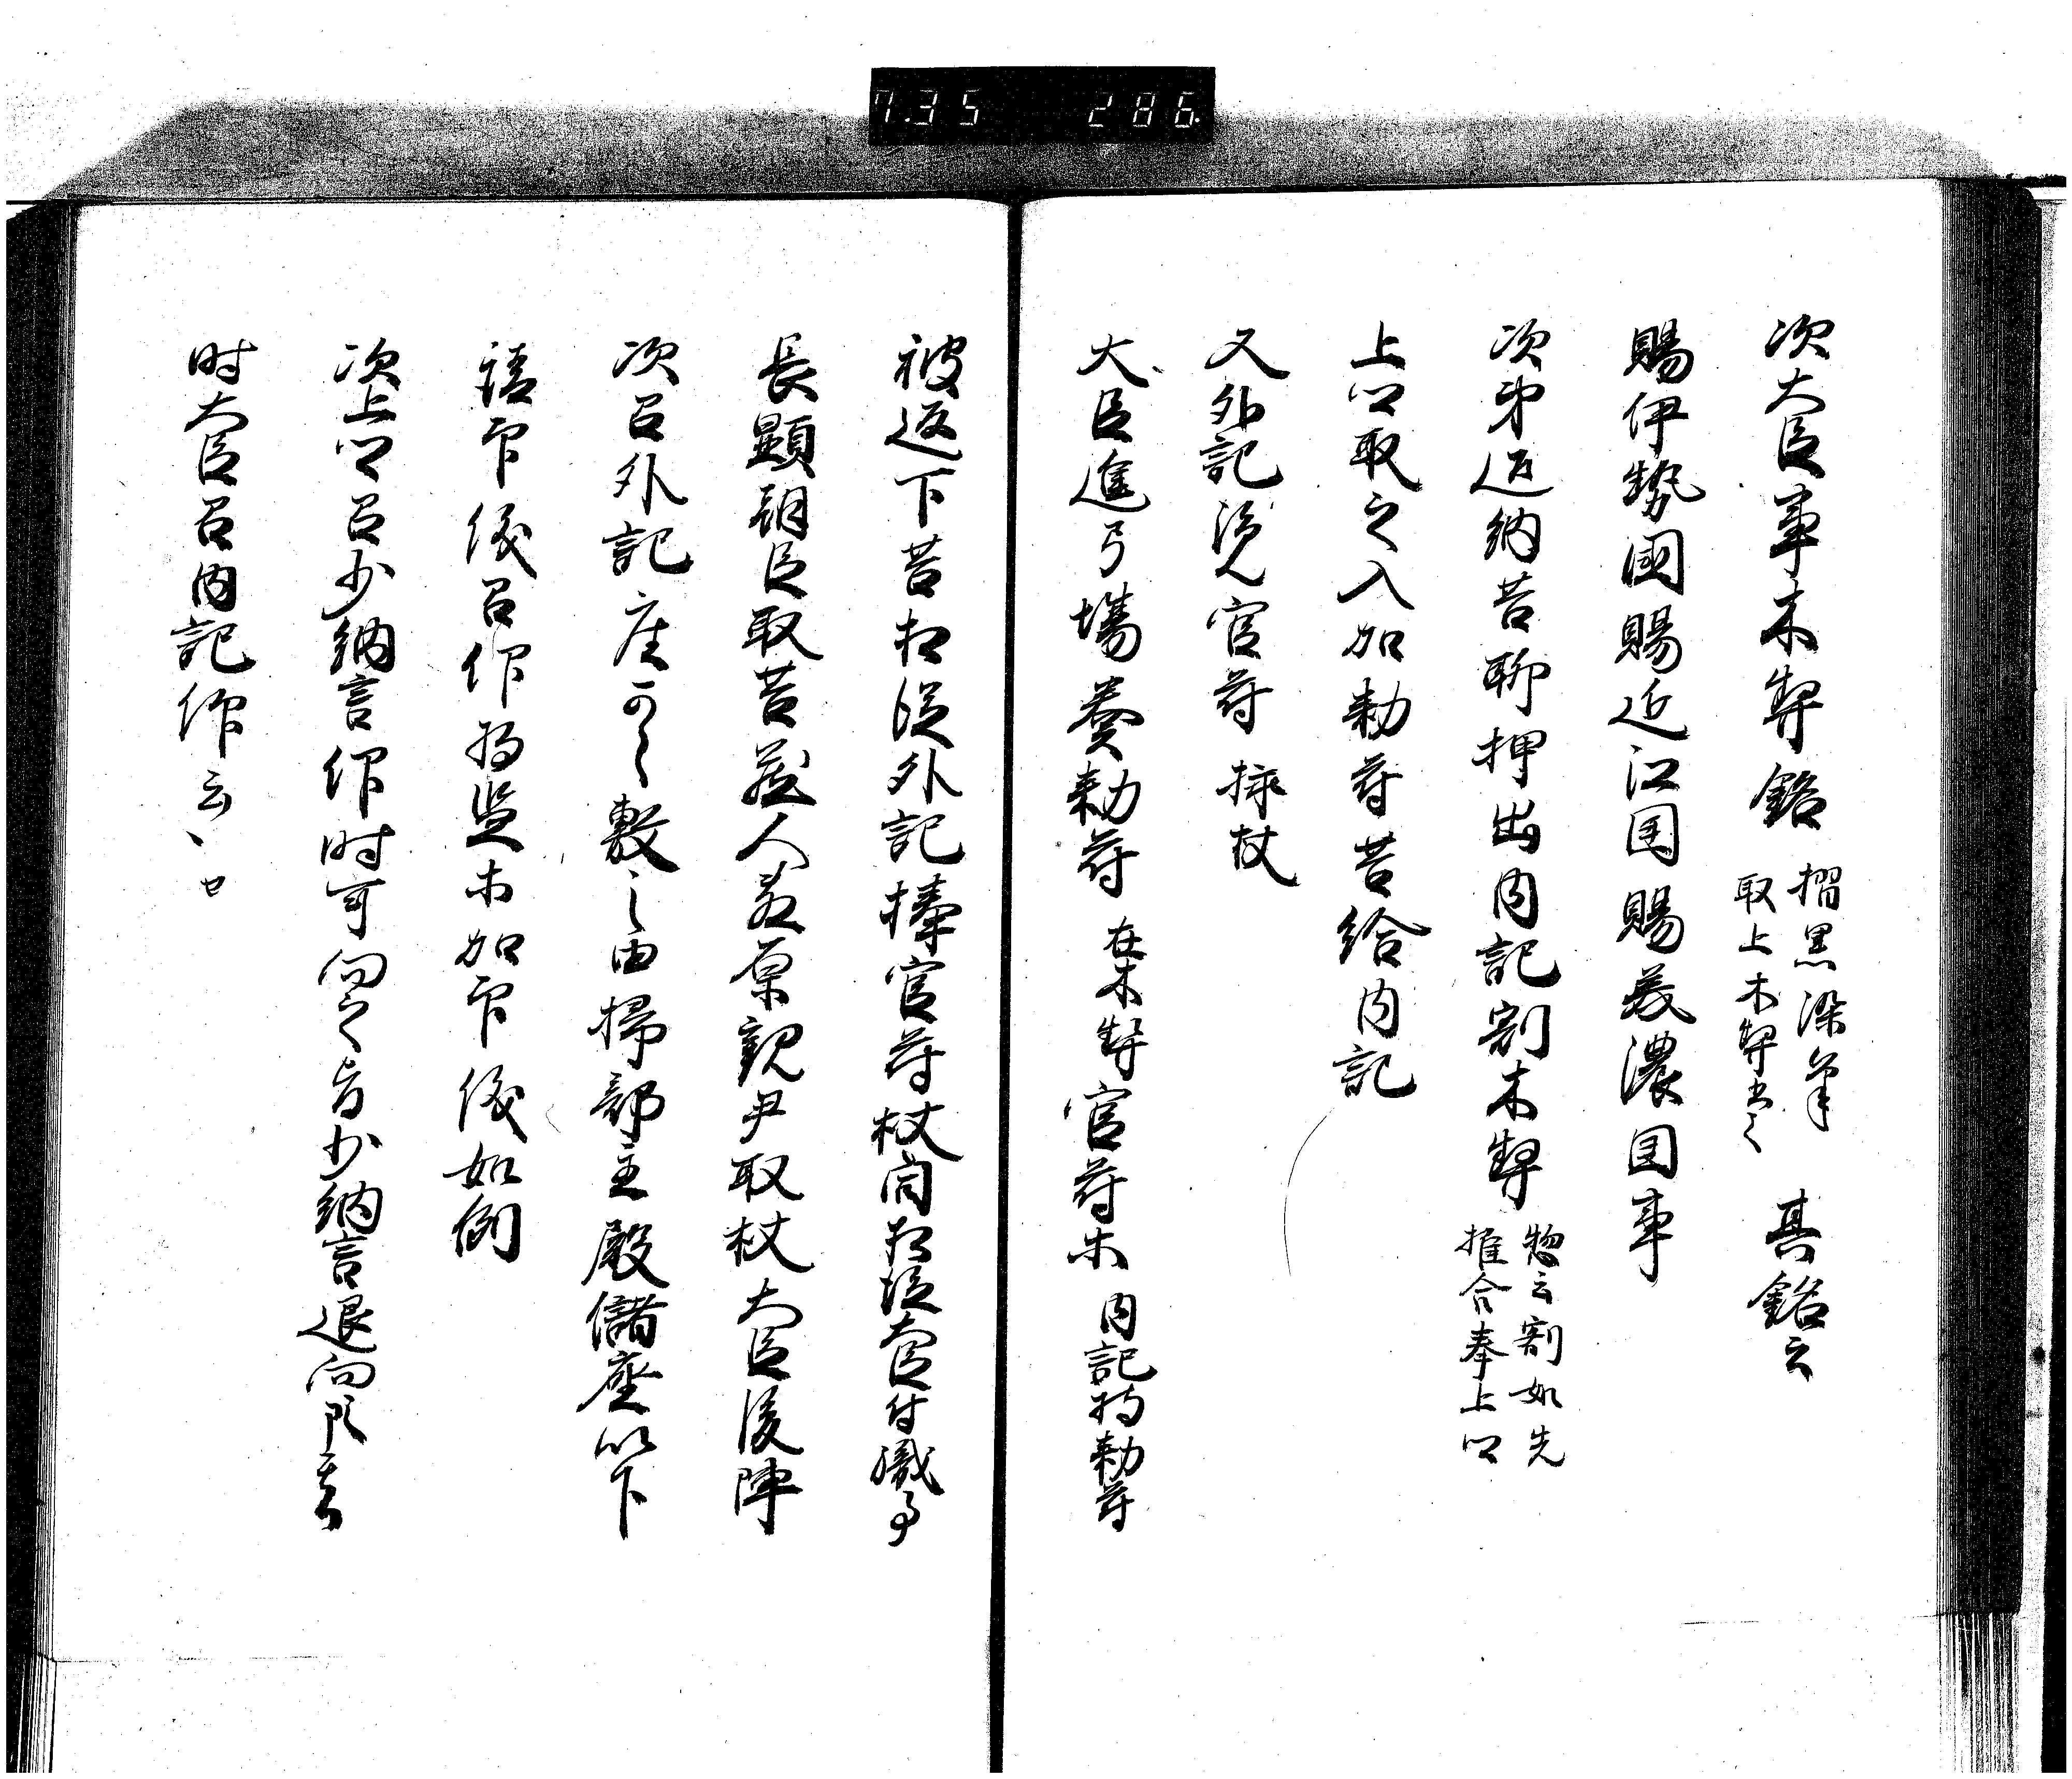 7.35 286.
次大臣事木契銘 摺黒染筆
取上木契書之 其銘云
賜伊勢國賜近江国賜美濃国事
次第返納筥聊押出内記割木契 惣云割如先
推合奉上卿
上卿取之入加勅符筥給内記
又外記覧官符 挿杖
大臣進弓場奏勅符 在木契官符木 内記持勅符
被返下筥相従外記捧官符杖同相従大臣付職事
長顕朝臣取筥蔵人藤原親尹取杖大臣復陣
次召外記座可敷之由掃部主殿儲座以下
請印儀召作将監木加印儀如例
次上卿召少納言仰時可向之旨少納言退向
時大臣召内記仰云